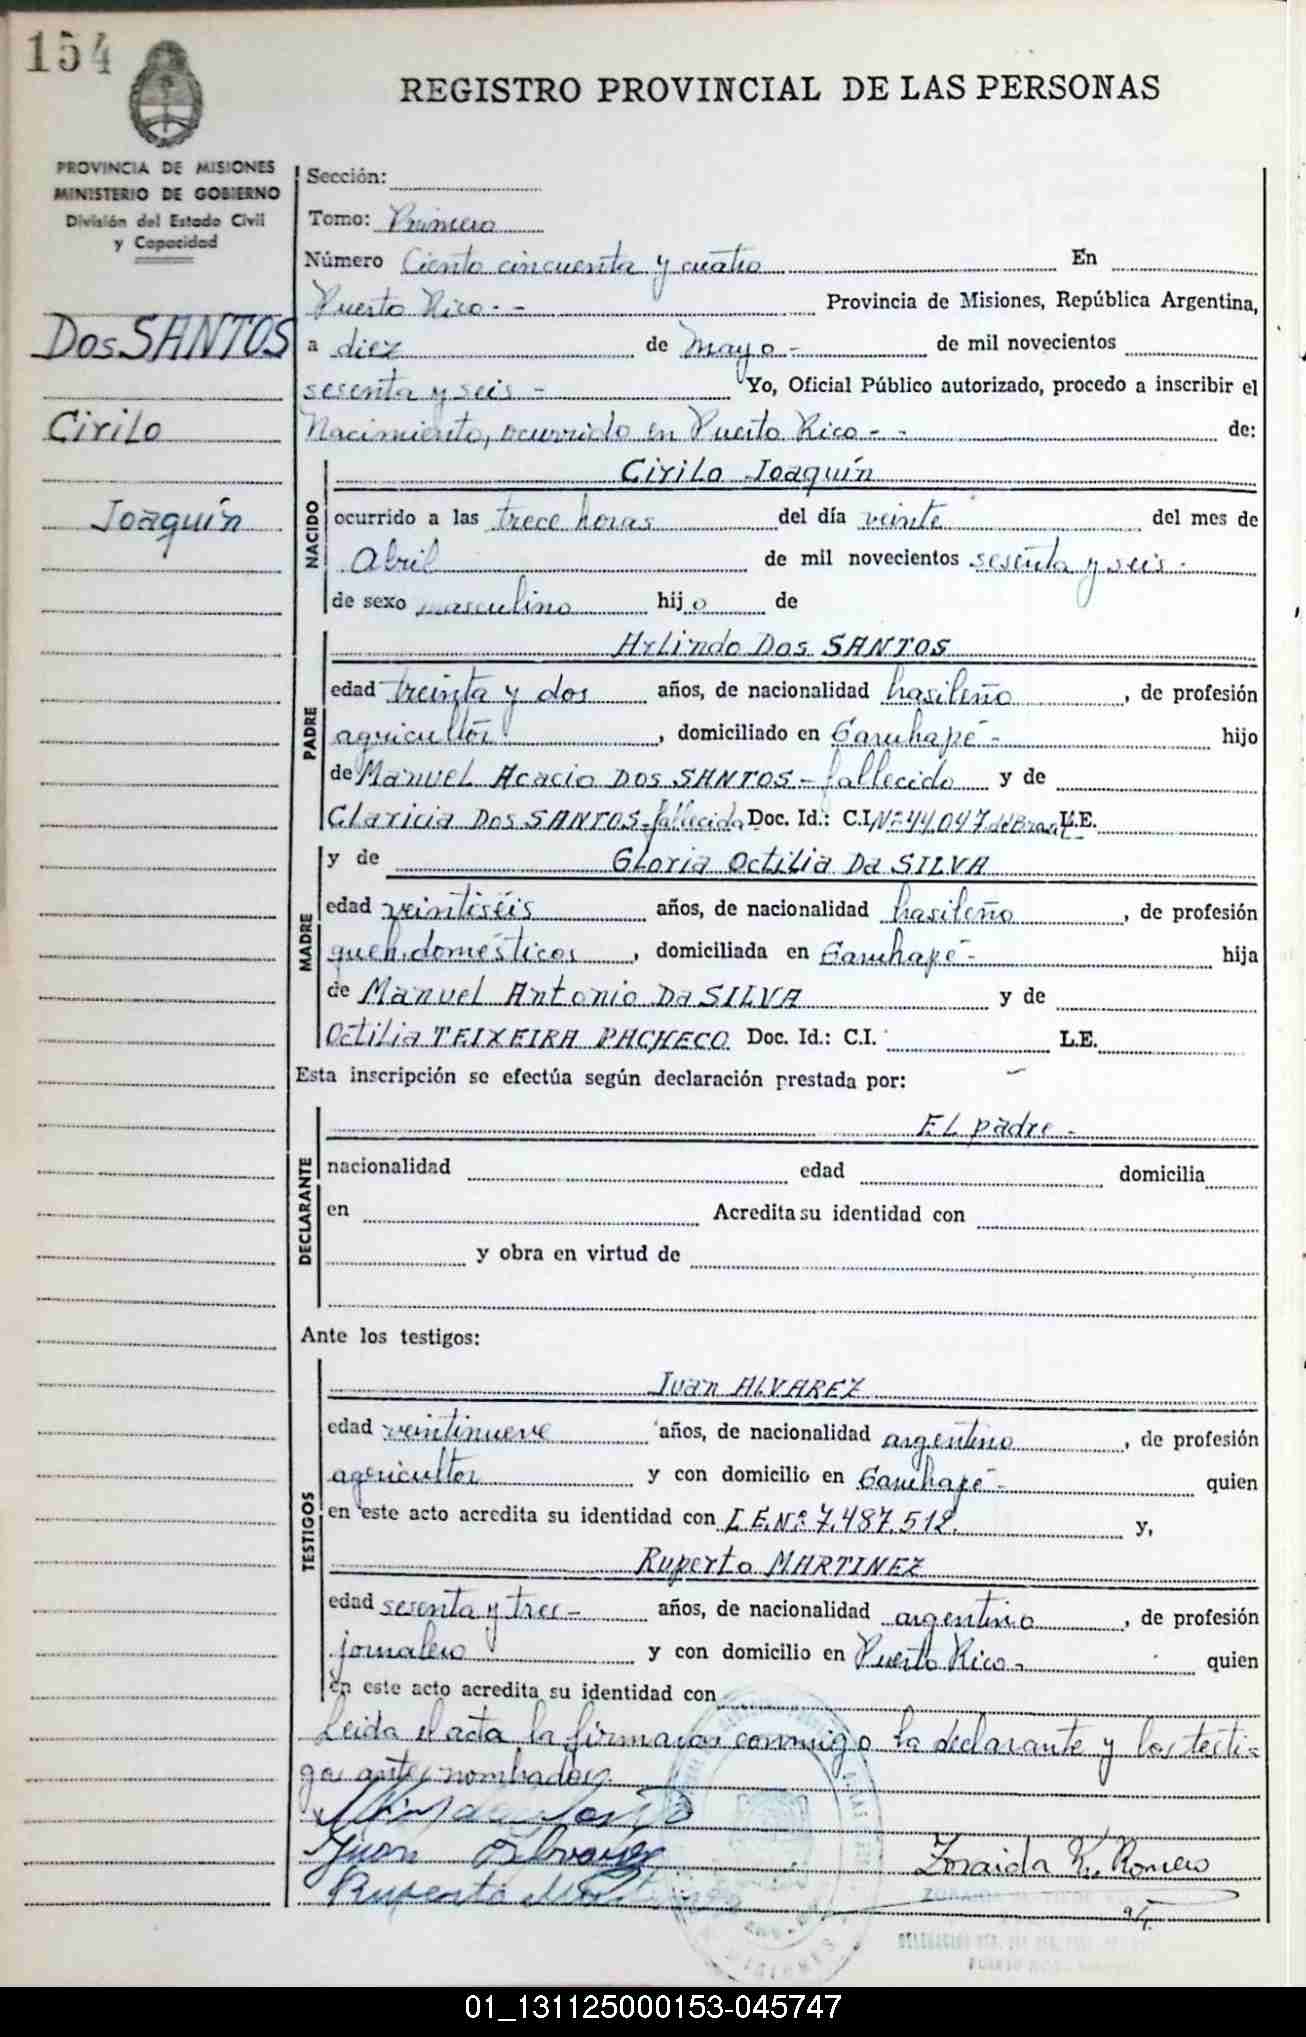 154
REGISTRO PROVINCIAL DE LAS PERSONAS
PROVINCIA DE MISIONES
MINISTERIO DE GOBIERNO
División del Estado Civil
y Capacidad
Dos SANTOS
Cirilo
Joaquín
Sección:
Tomo: Primero
Número Ciento cincuenta y cuatro En
Puerto Rico - - Provincia de Misiones, República Argentina,
a diez de Mayo - de mil novecientos
sesenta y seis - Yo, Oficial Público autorizado, procedo a inscribir el
Nacimiento, ocurrido en Puerto Rico - - de:
NACIDO
Cirilo Joaquín
ocurrido a las trece horas del día veinte del mes de
Abril de mil novecientos sesenta y seis -
de sexo masculino hijo de
PADRE
Arlindo Dos SANTOS
edad treinta y dos años, de nacionalidad brasileño, de profesión
agricultor, domiciliado en Garuhapé - hijo
de Manuel Acacio DOS SANTOS - fallecido y de
Claricia Dos SANTOS - fallecida Doc. Id.: C.I. Nº 44.047 de Brasil L.E.
MADRE
y de Gloria Octilia Da SILVA
edad veintiséis años, de nacionalidad brasileño, de profesión
queh. domésticos, domiciliada en Garuhapé - hija
de Manuel Antonio Da SILVA y de
Octilia TEIXEIRA PACHECO Doc. Id.: C.I. L.E.
Esta inscripción se efectúa según declaración prestada por:
DECLARANTE
El padre -
nacionalidad edad domicilia
en Acredita su identidad con
y obra en virtud de
Ante los testigos:
TESTIGOS
Juan ALVAREZ
edad veintinueve años, de nacionalidad argentino, de profesión
agricultor y con domicilio en Garuhapé - quien
en este acto acredita su identidad con L.E. Nº 7.487.512. y,
Ruperto MARTINEZ
edad sesenta y tres - años, de nacionalidad argentino, de profesión
jornalero y con domicilio en Puerto Rico - quien
en este acto acredita su identidad con
Leida el acta la firmaron conmigo la declarante y los testi-
gos antes nombrados.
Juan Alvarez
Ruperto Martinez
Zoraida K. Romero
01_131125000153-045747